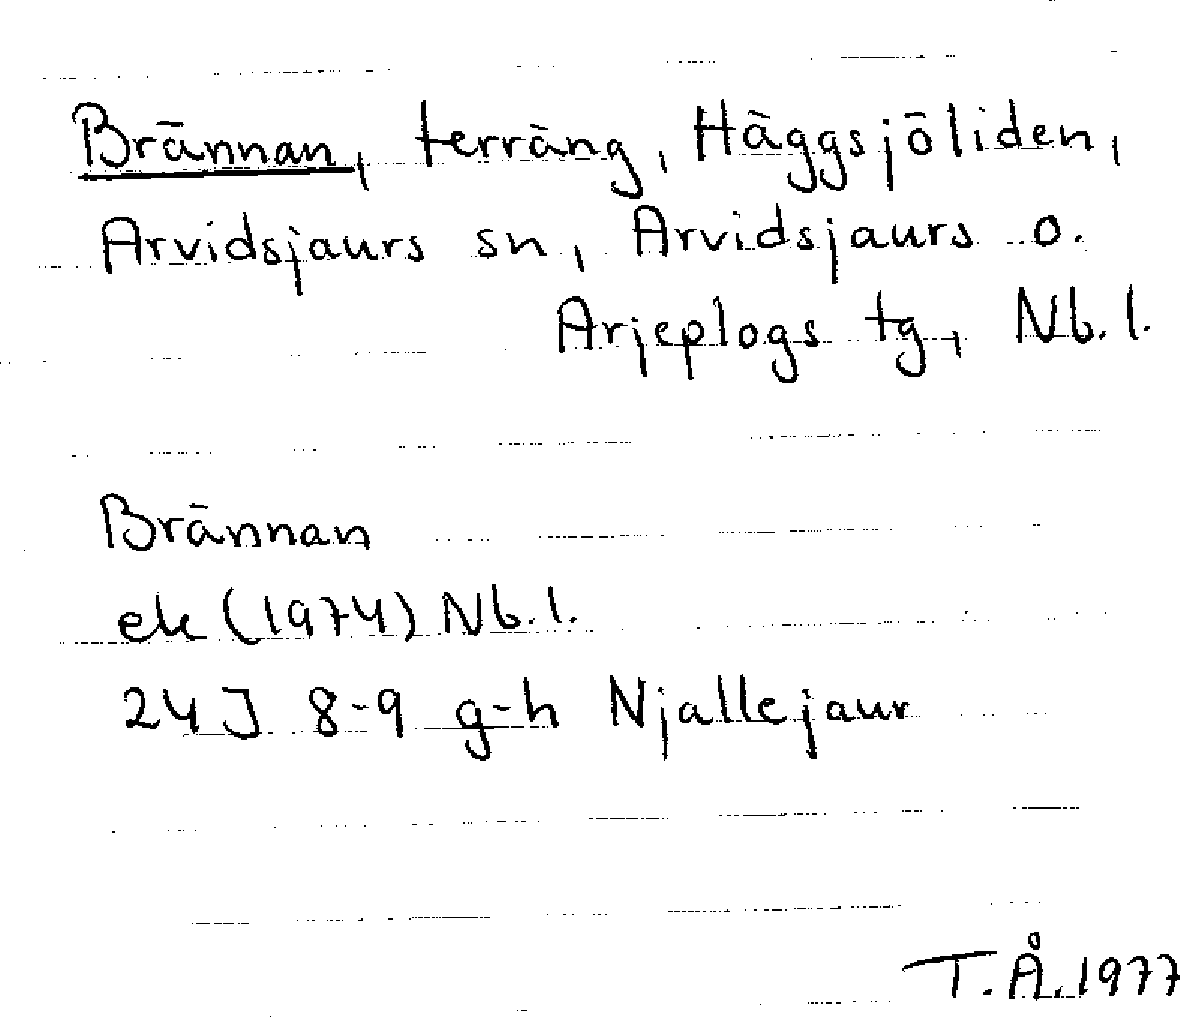 Brännan, terräng, Häggsjöliden,
Arvidsjaurs sn, Arvidsjaurs o.
Arjeplogs tg, Nb. l.
Brännan
ek (1974) Nb. l.
24 J 8-9 g-h Njallejaur
T. Å. 1977